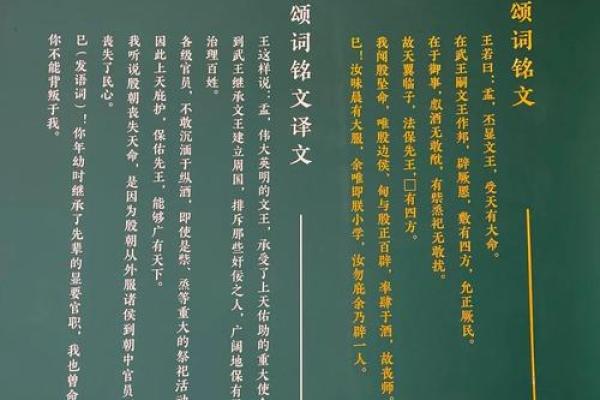 颂词铭文
王若曰:孟,丕显文王,受天有大命。
在武王嗣文王作邦,辟厥慝,敷有四方,允正厥民。
在于御事,酒无敢酖,有祡烝祀无敢扰。
故天翼临子,法保先王,□有四方。
我闻殷坠命,唯殷边侯、甸与殷正百辟,率肆于酒,故丧师。
巳!汝昧晨有大服,余唯即朕小学,汝勿庇余乃辟一人。
颂词铭文译文
王这样说:孟,伟大英明的文王,承受了上天佑助的重大使
到武王继承文王建立周国,排斥那些奸佞之人,广阔地保有
治理百姓。
各级官员,不敢沉湎于纵酒,即使是祡、烝等重大的祭祀活
因此上天庇护,保佑先王,能够广有天下。
我听说殷朝丧失天命,是因为殷朝从外服诸侯到朝中官员
丧失了民心。
巳(发语词)!你年幼时继承了先辈的显要官职,我也曾命
你不能背叛于我。